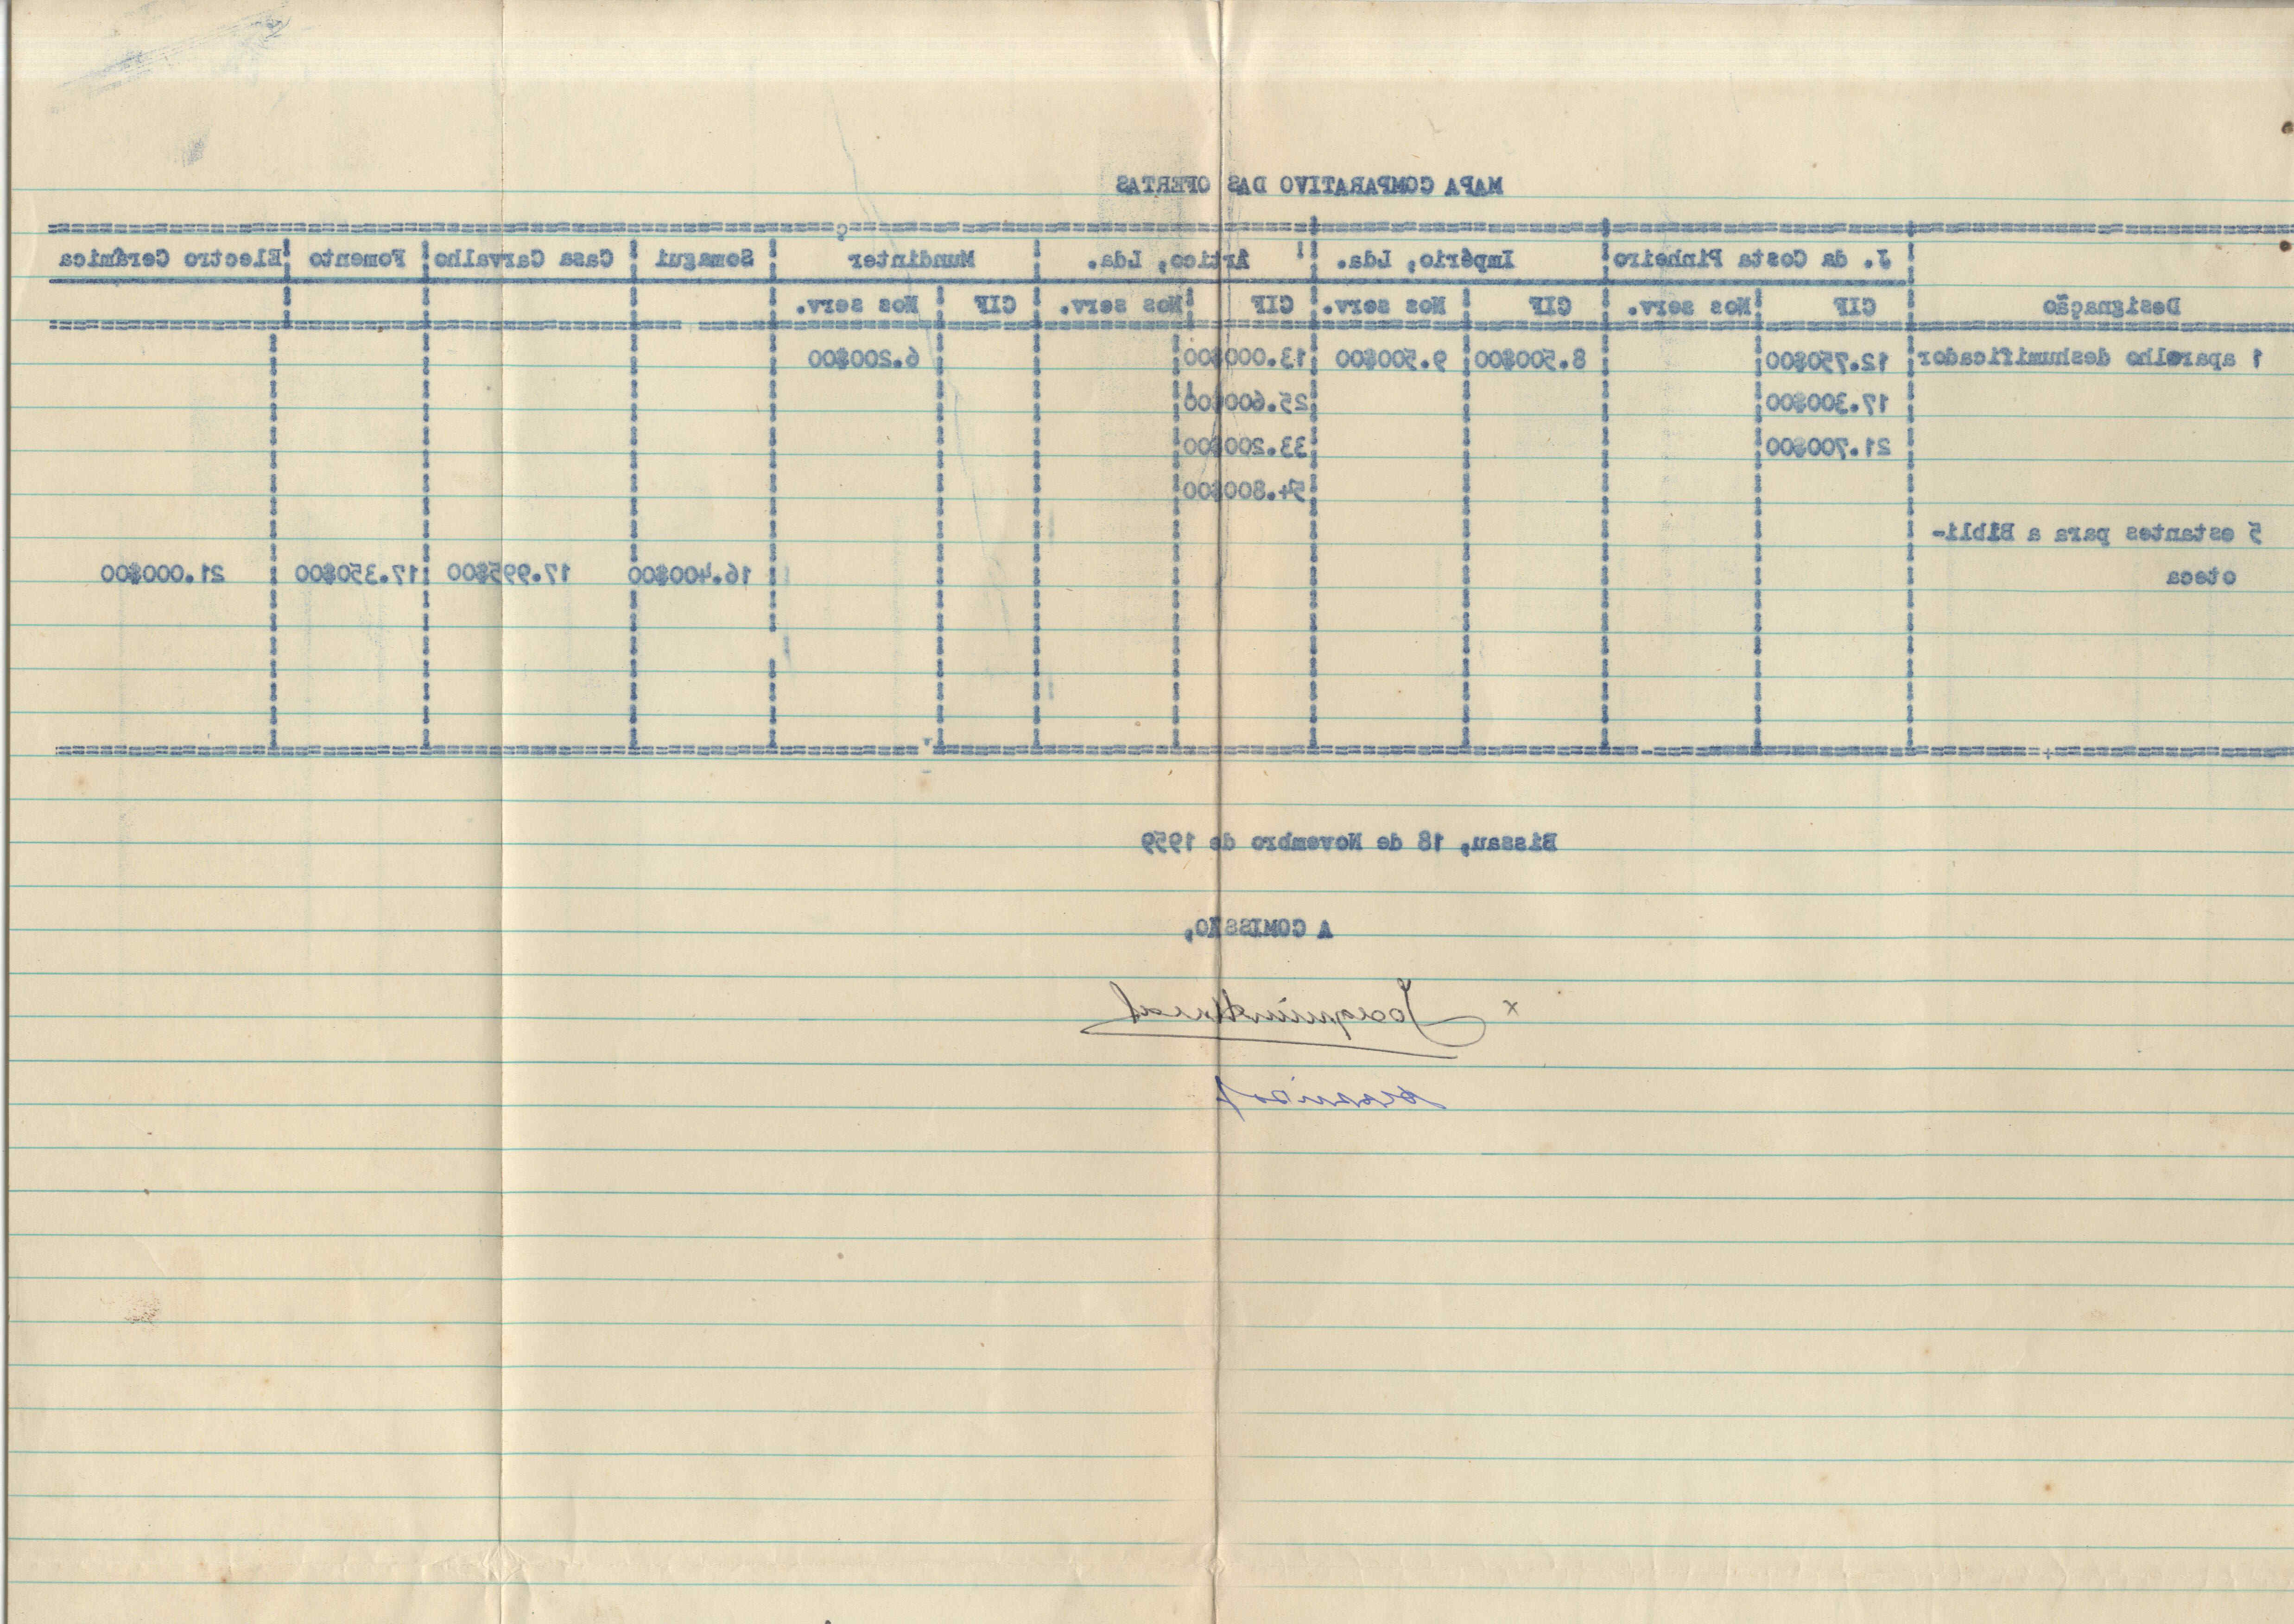 MAPA COMPARATIVO DAS OFERTAS
J. da Costa Pinheiro Império, Lda. Ártico, Lda. Mundinter Somagui Casa Carvalho Fomento Electro Cerâmica
Designação CIF Nos serv. CIF Nos serv. CIF Nos serv. CIF Nos serv.
1 aparelho deshumificador 12.750$00 8.500$00 9.500$00 13.000$00 6.200$00
17.300$00 25.600$00
21.700$00 33.200$00
54.800$00
5 estantes para a Bibli-
oteca 16.400$00 17.995$00 17.350$00 21.000$00
Bissau, 18 de Novembro de 1959
A COMISSÃO,
x Joaquim